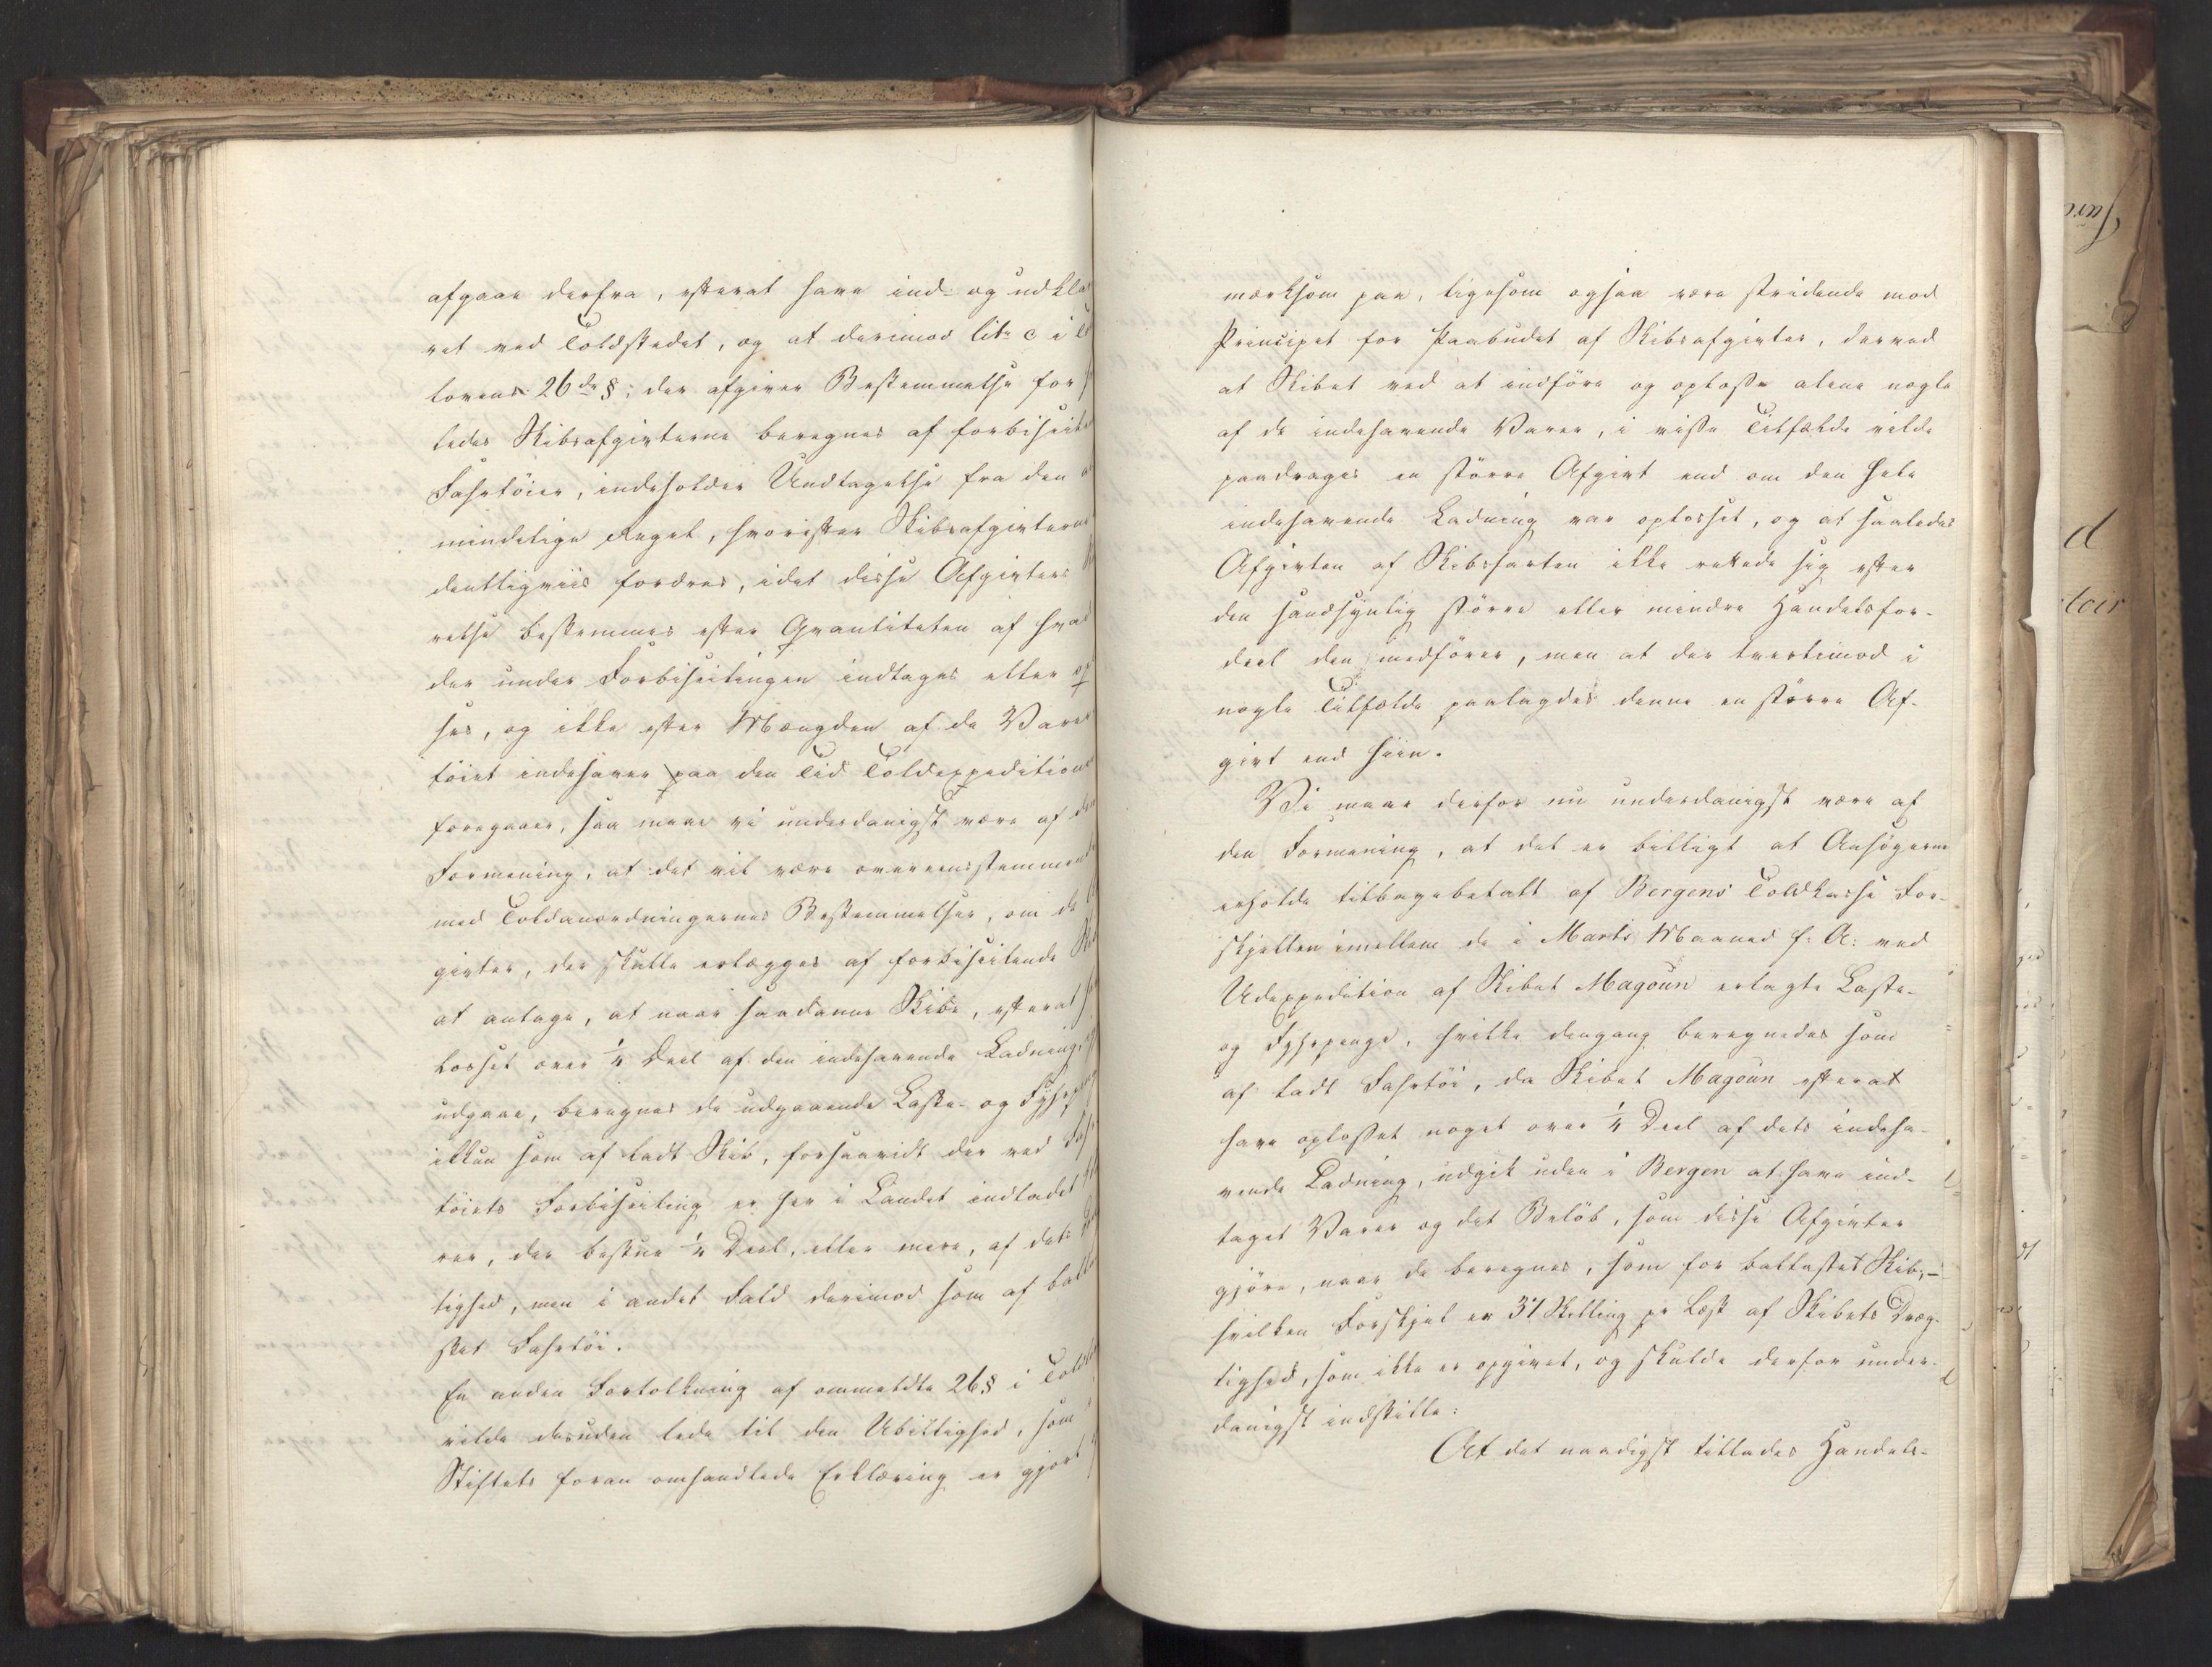 afgaae derfra, efterat have ind- og udkla
ret ved Toldstedet, og at derimod lit: c i To
lovens 26de §; der afgiver Bestemmelse for
ledes Skibsafgivterne beregnes af forbiseile
Fahrtöier, indeholder Undtagelse fra den
mindelige Regel, hvorefter Skibsafgivterne
dentligviis fordres, idet disse Afgivters
relse bestemmes efter Qvantiteten af hvad
der under Forbiseilingen indtages eller op
ses, og ikke efter Mængden af de Varer
töiet indehaver paa den Tid Toldexpeditione
foregaaer, saa maae vi underdanigst være af den
Formening, at det vil være overeensstemmende
med Toldanordningernes Bestemmelser, om de
givter, der skulle erlægges af forbiseilende Skib
at antage, at naar saadanne Skibe, efterat
losset over 1/4 Deel af den indehavende Ladning,
udgaae, beregnes de udgaaende Laste- og Fyhrpeng
ikkun som af ladt Skib, forsaavidt der ved Fahr
töiets Forbiseiling er her i Landet indladet
rer, der bestaae 1/4 Deel, eller mere, af dets
tighed, men i andet Fald derimod som af balla
stet Fahrtöi.
En anden Fortolkning af ommeldte 26 § i Toldlo
vilde desuden lede til den Ubillighed, som
Stiftets foran omhandlede Erklæring er gjort
mærksom paa, ligesom ogsaa være stridende mod
Principet for Paabudet af Skibsafgivter, derved
at Skibet ved at indföre og oplosse alene nogle
af de indehavende Varer, i visse Tilfælde vilde
paadrages en större Afgivt end om den hele
indehavende Ladning var oplosset, og at saaledes
Afgivten af Skibsfarten ikke rettede sig efter
den sandsynlig större eller mindre Handelsfor-
deel den medförer, men at der tvertimod i
nogle Tilfælde paalagdes denne en större Af-
givt end hiin.
Vi maae derfor nu underdanigst være af
den Formening, at det er billigt at Ansögerne
erholde tilbagebetalt af Bergens Toldkasse For-
skjellen imellem de i Marts Maaned f: A: ved
Udexpedition af Skibet Magoun erlagte Laste-
og Fyhrpenge, hvilke dengang beregnedes som
af ladt Fahrtöi, da Skibet Magoun efterat
have oplosset noget over 1/4 Deel af dets indeha-
vende Ladning, udgik uden i Bergen at have ind-
taget Varer og det Belöb, som disse Afgivter
gjöre, naar de beregnes, som for ballastet Skib,-
hvilken Forskjel er 37 Skilling pr Læst af Skibets Dræg-
tighed, som ikke er opgivet, og skulde derfor under-
danigst indstille:
At det naadigst tillades Handels-